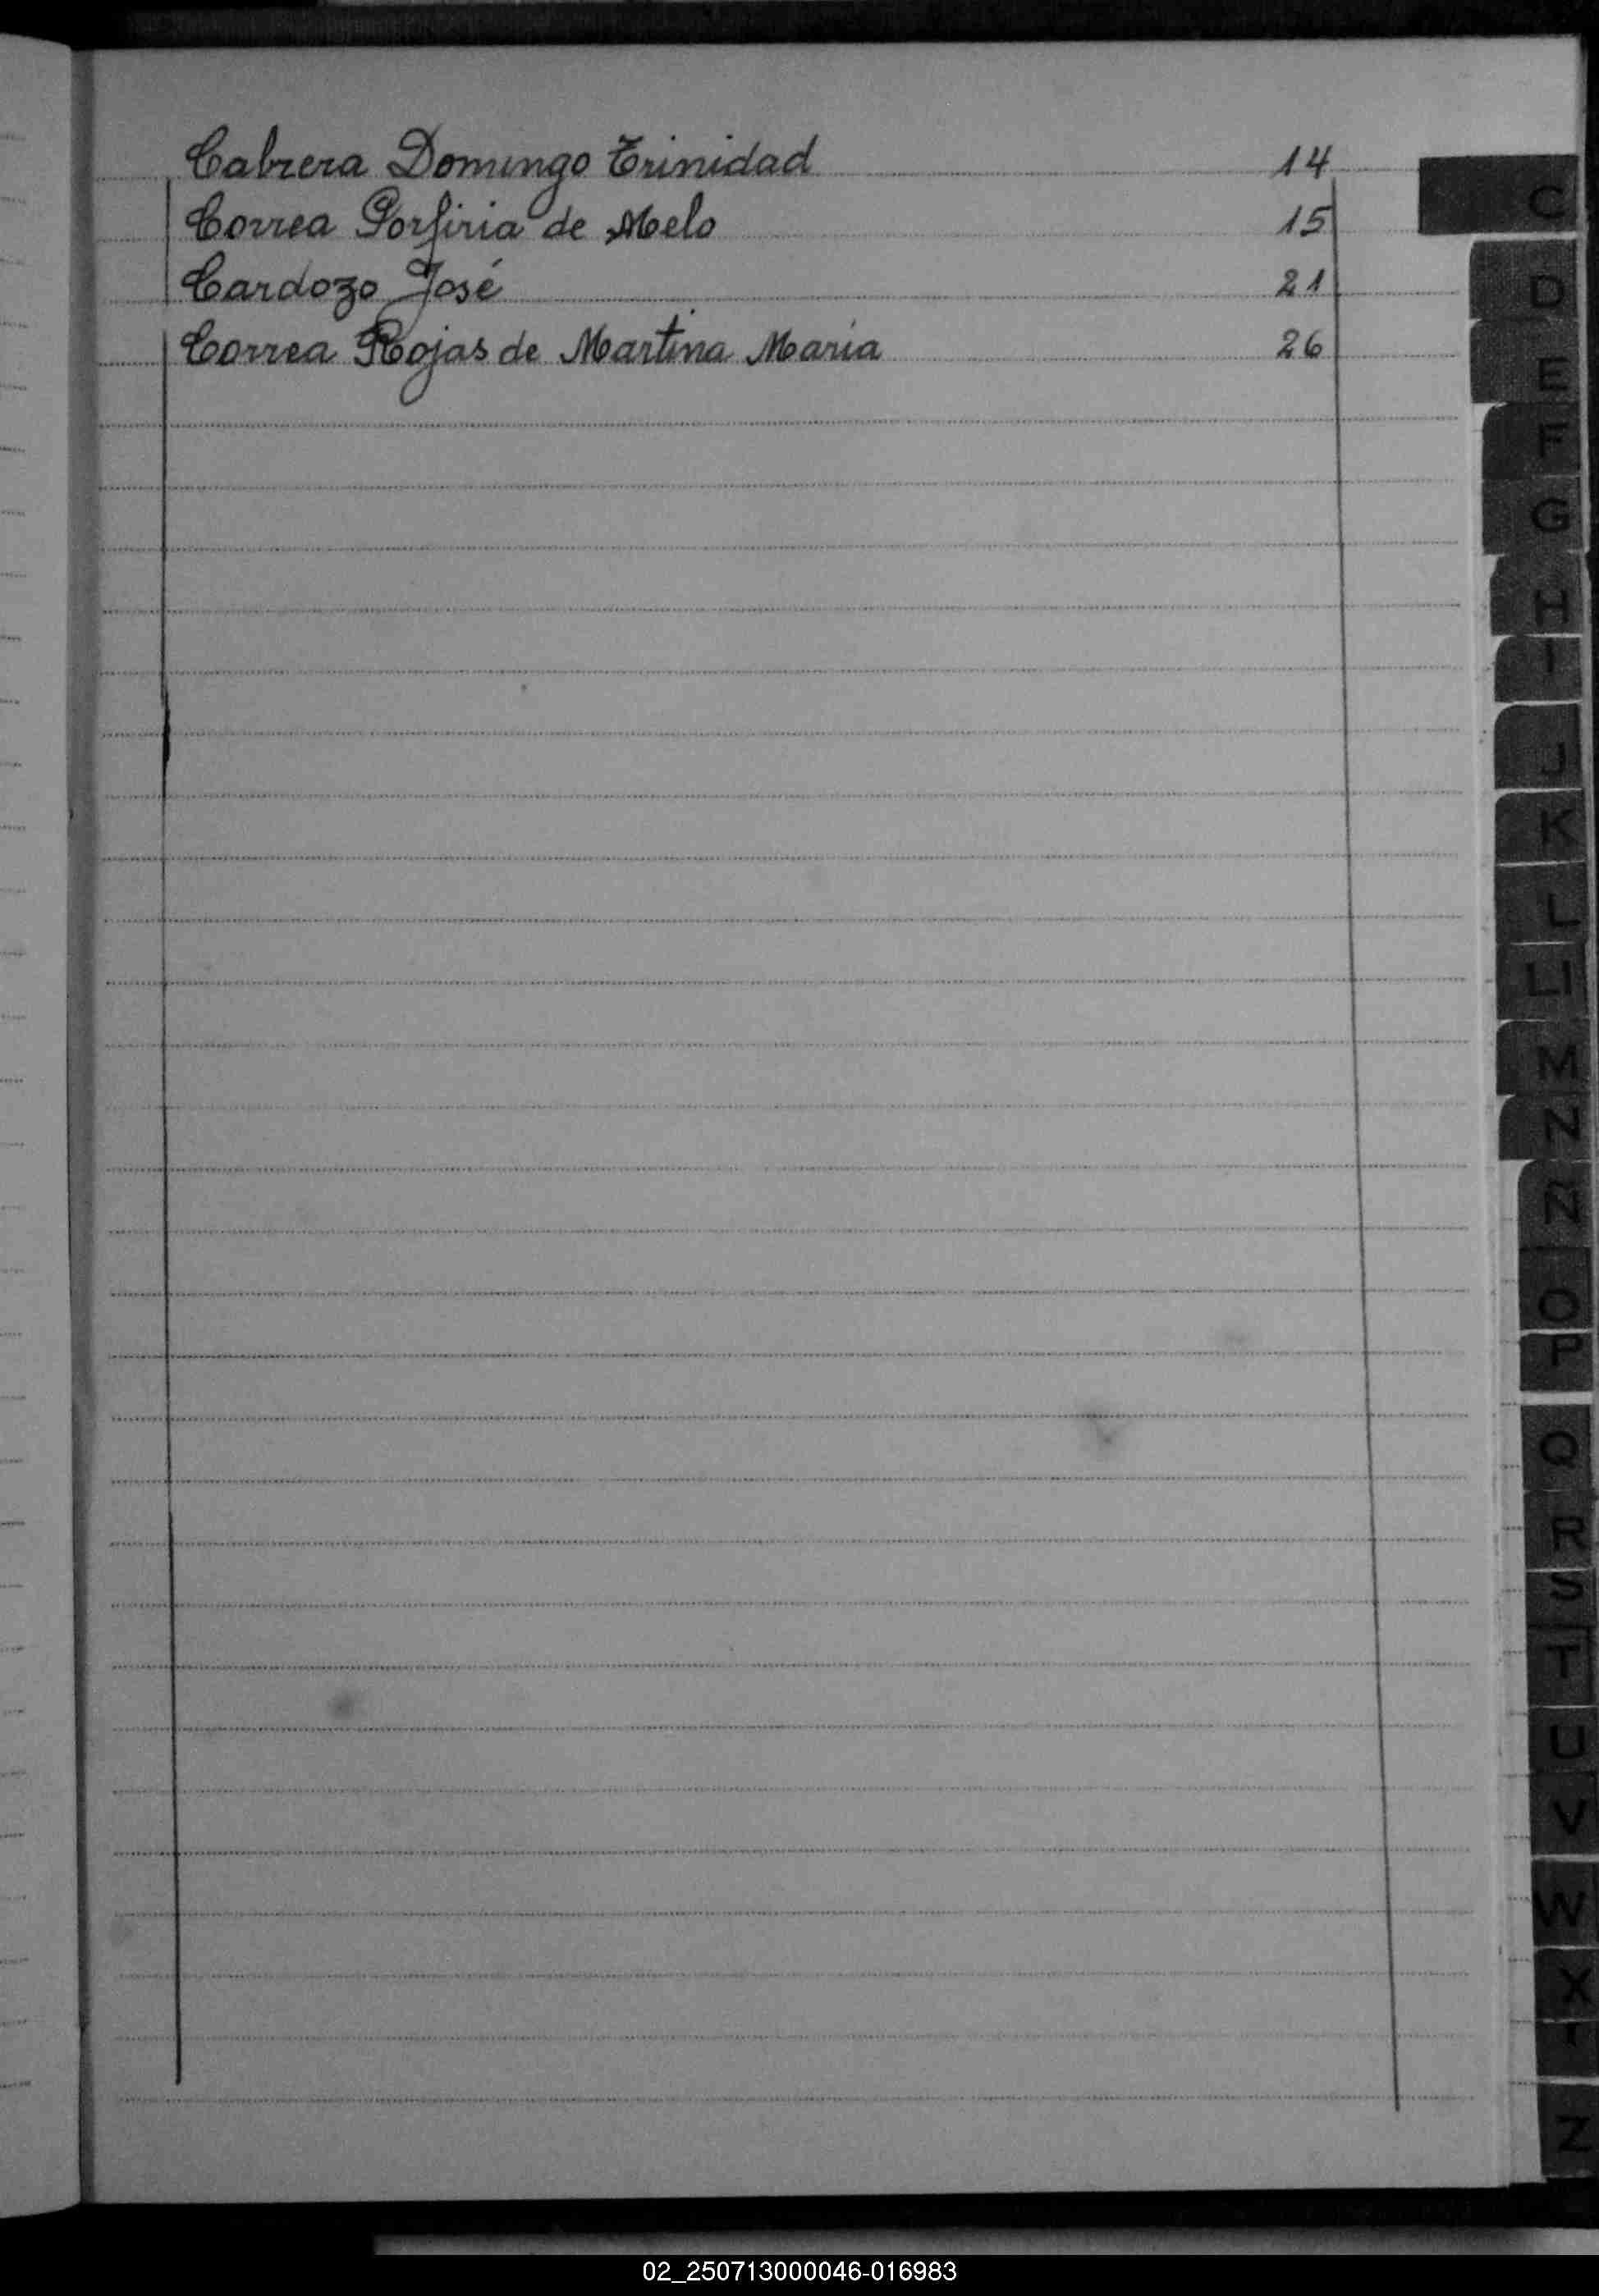 Cabrera Domingo Trinidad 14
Correa Porfiria de Melo 15
Cardozo José 21
Correa Rojas de Martina María 26
C
D
E
F
G
H
I
J
K
L
Ll
M
N
Ñ
O
P
Q
R
S
T
U
V
W
X
Z
02_250713000046-016983